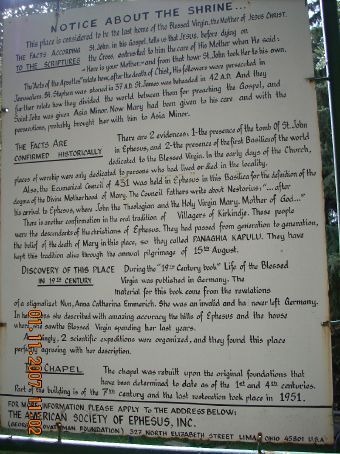 NOTICE ABOUT THE SHRINE...
This place is considered to be the last home of the Blessed Virgin, the Mother of JESUS CHRIST.
THE FACTS ACCORDING
TO THE SCRIPTURES
St. John in his Gospel, tells us that JESUS, before dying on
the Cross, entrusted to him the care of His Mother when He said:
"Here is your Mother" and from that hour St. John took Her to his own.
The "Acts of the Apostles" relate how, after the death of Christ, His followers were persecuted in
Jerusalem. St. Stephen was stoned in 37 A.D. St. James was beheaded in 42 A.D. And they
further relate how they divided the world between them for preaching the Gospel, and
Saint John was given Asia Minor. Now Mary had been given to his care and with the
persecutions, probably brought her with him to Asia Minor.
THE FACTS ARE
CONFIRMED HISTORICALLY
There are 2 evidences: 1-the presence of the tomb Of St. John
in Ephesus, and 2-the presence of the first Basilica of the world
dedicated to the Blessed Virgin. In the early days of the Church,
places of worship were only dedicated to persons who had lived or died in the locality.
Also, the Ecumenical Council of 431 was held in Ephesus in this Basilica for the definition of the
dogma of the Divine Motherhood of Mary. The Council Fathers write about Nestorius: "... after
his arrival to Ephesus, where John the Theologian and the Holy Virgin Mary, Mother of God..."
There is another confirmation in the oral tradition of Villagers of Kirkindje. These people
were the descendants of the christians of Ephesus. They had passed from generation to generation,
the belief of the death of Mary in this place, so they called PANAGHIA KAPULU. They have
kept this tradition alive through the annual pilgrimage of 15th August.
DISCOVERY OF THIS PLACE
IN 19TH CENTURY
During the "19th Century book" Life of the Blessed
Virgin was published in Germany. The
material for this book come from the revelations
of a stigmatiset Nun, Anna Catharina Emmerich. She was an invalid and has never left Germany.
In her she described with amazing accuracy the hills of Ephesus and the house
where she saw the Blessed Virgin spending her last years.
Accordingly, 2 scientific expeditions were organized, and they found this place
perfectly agreeing with her description.
THE CHAPEL
The chapel was rebuilt upon the original foundations that
have been determined to date as of the 1st and 4th centuries.
Part of the building is of the 7th century and the last restoration took place in 1951.
FOR MORE INFORMATION PLEASE APPLY TO THE ADDRESS BELOW:
THE AMERICAN SOCIETY OF EPHESUS, INC.
(GEORGE FOUNDATION) 327 NORTH ELIZABETH STREET LIMA, OHIO 45801 U.S.A.
01.11.2007 11:02